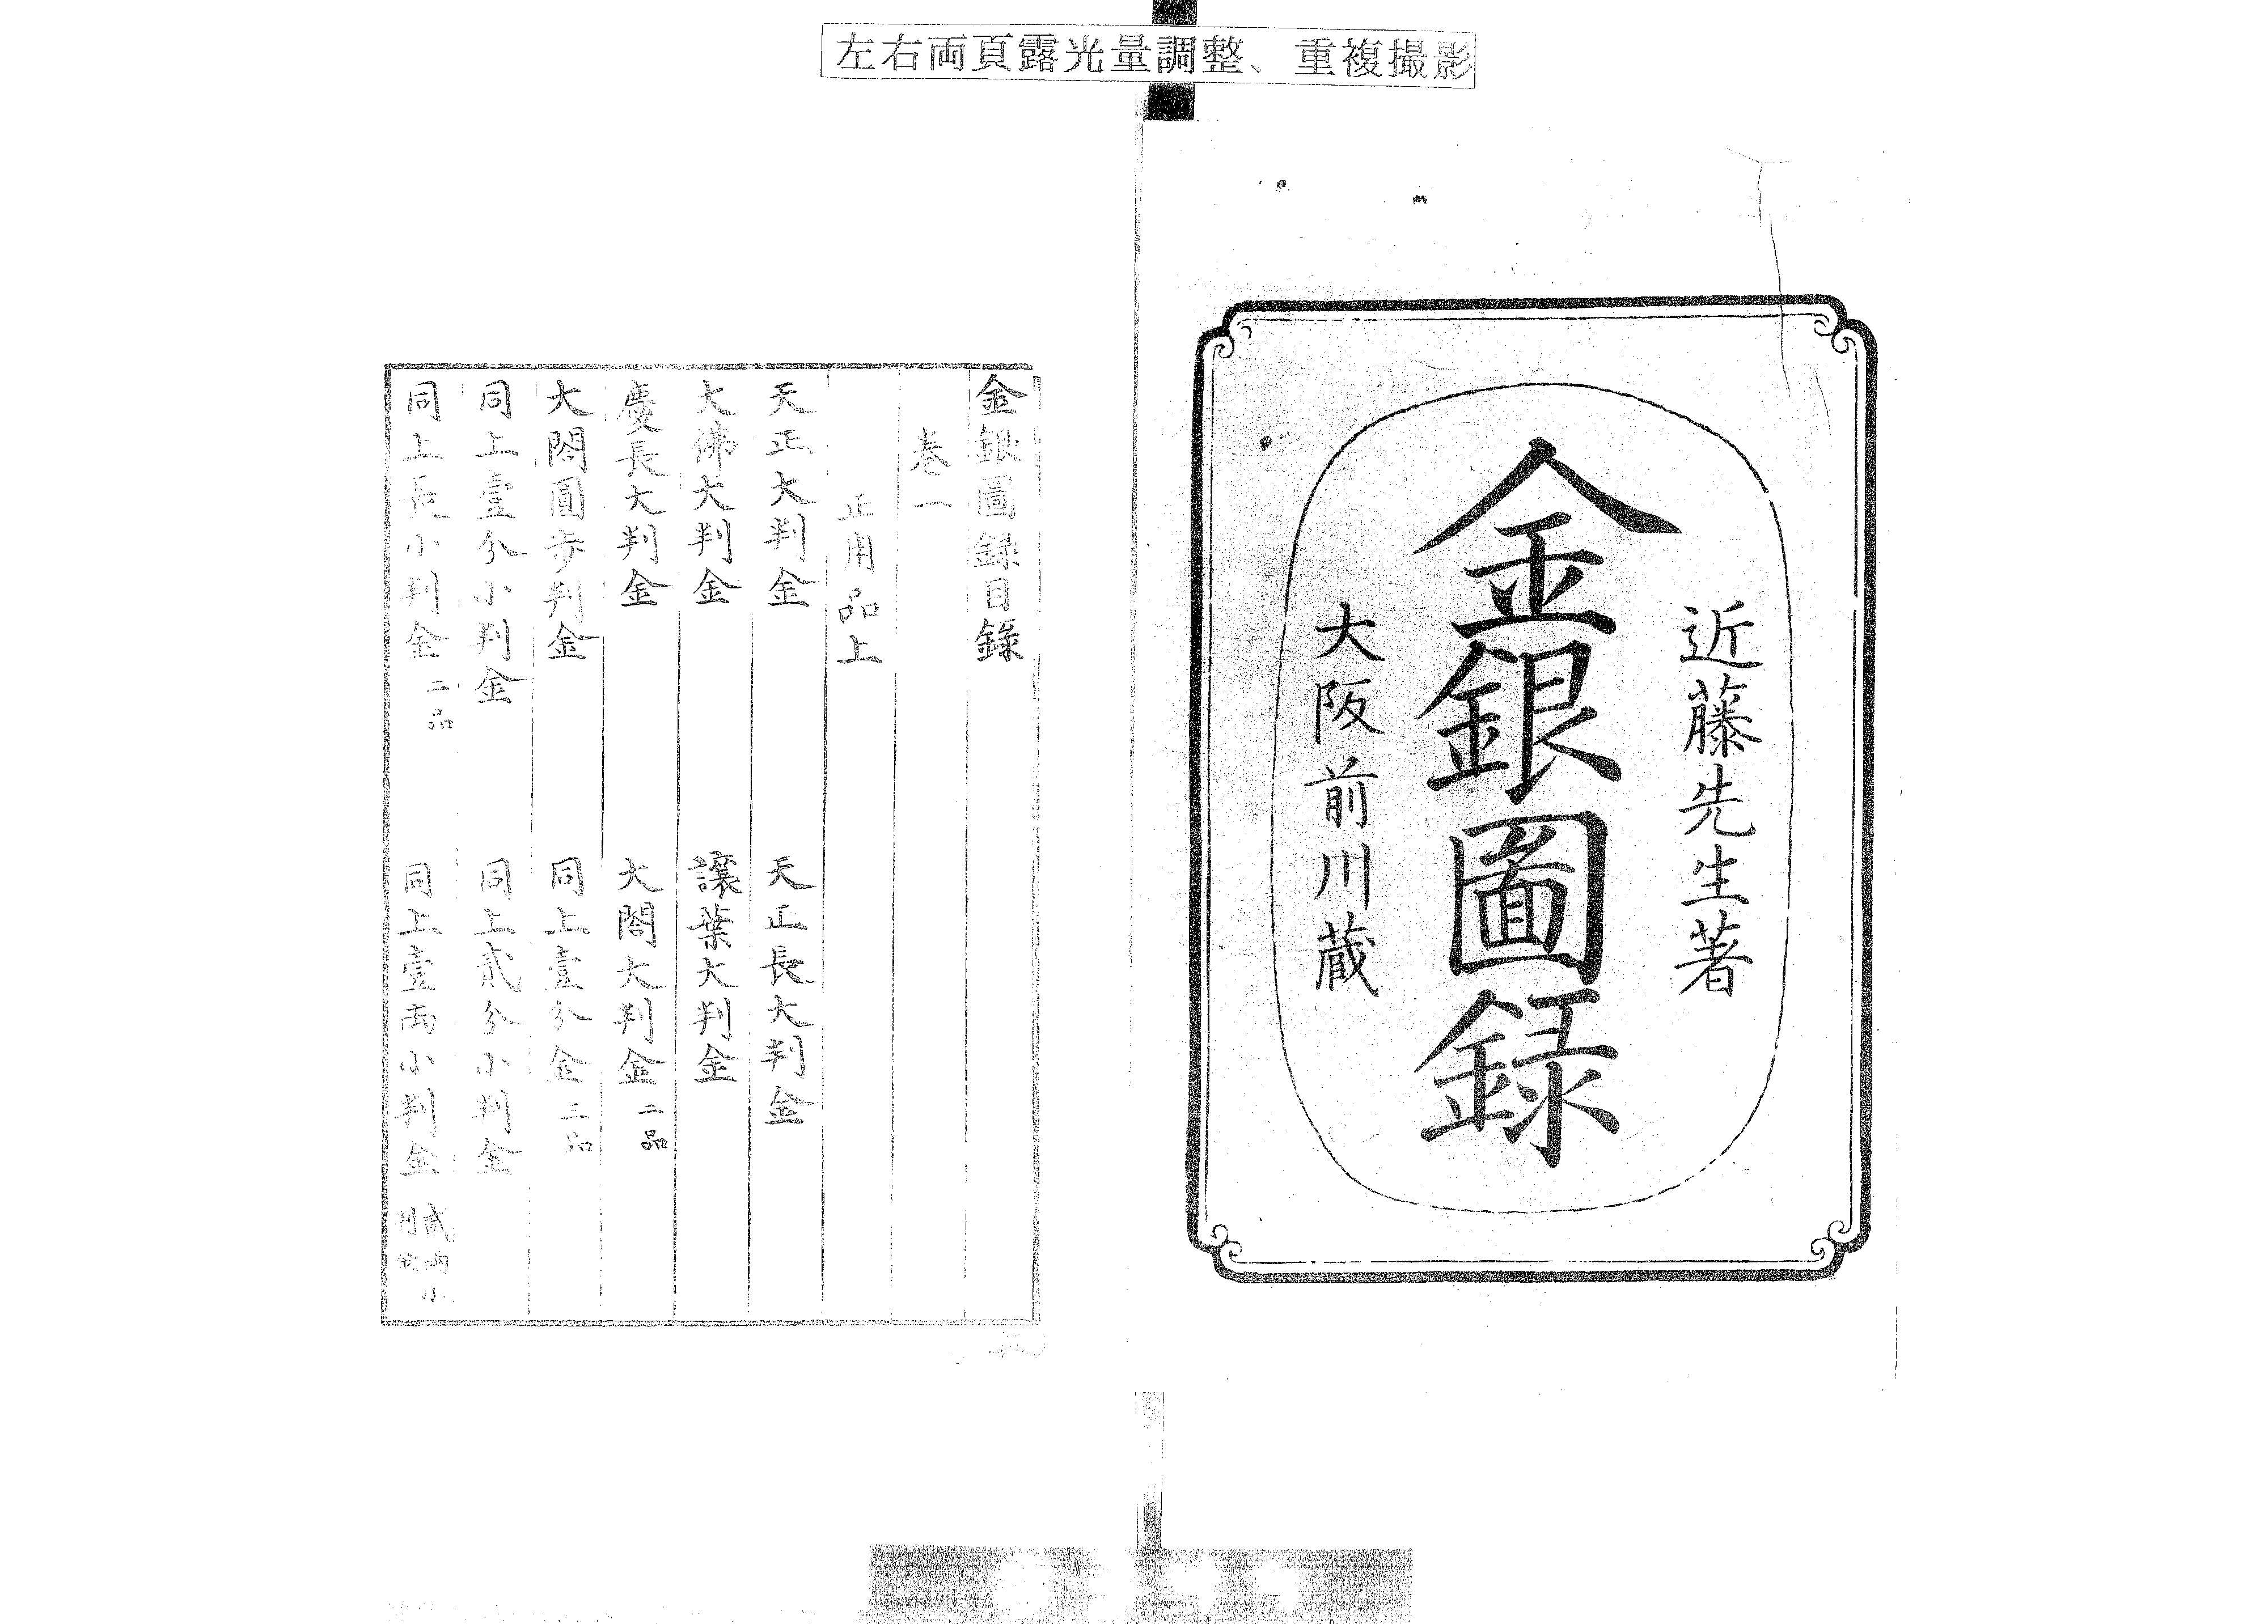 左右両頁露光量調整、重複撮影
近藤先生著
金銀圖録
大阪前川蔵
金銀圖録目録
巻一
正用品上
天正大判金
天正長大判金
大佛大判金
讓葉大判金
慶長大判金
大閤大判金 二品
大閤圓歩判金
同上壹分金 三品
同上壹分小判金
同上貳分小判金
同上長小判金 二品
同上壹両小判金 貳両小
判金